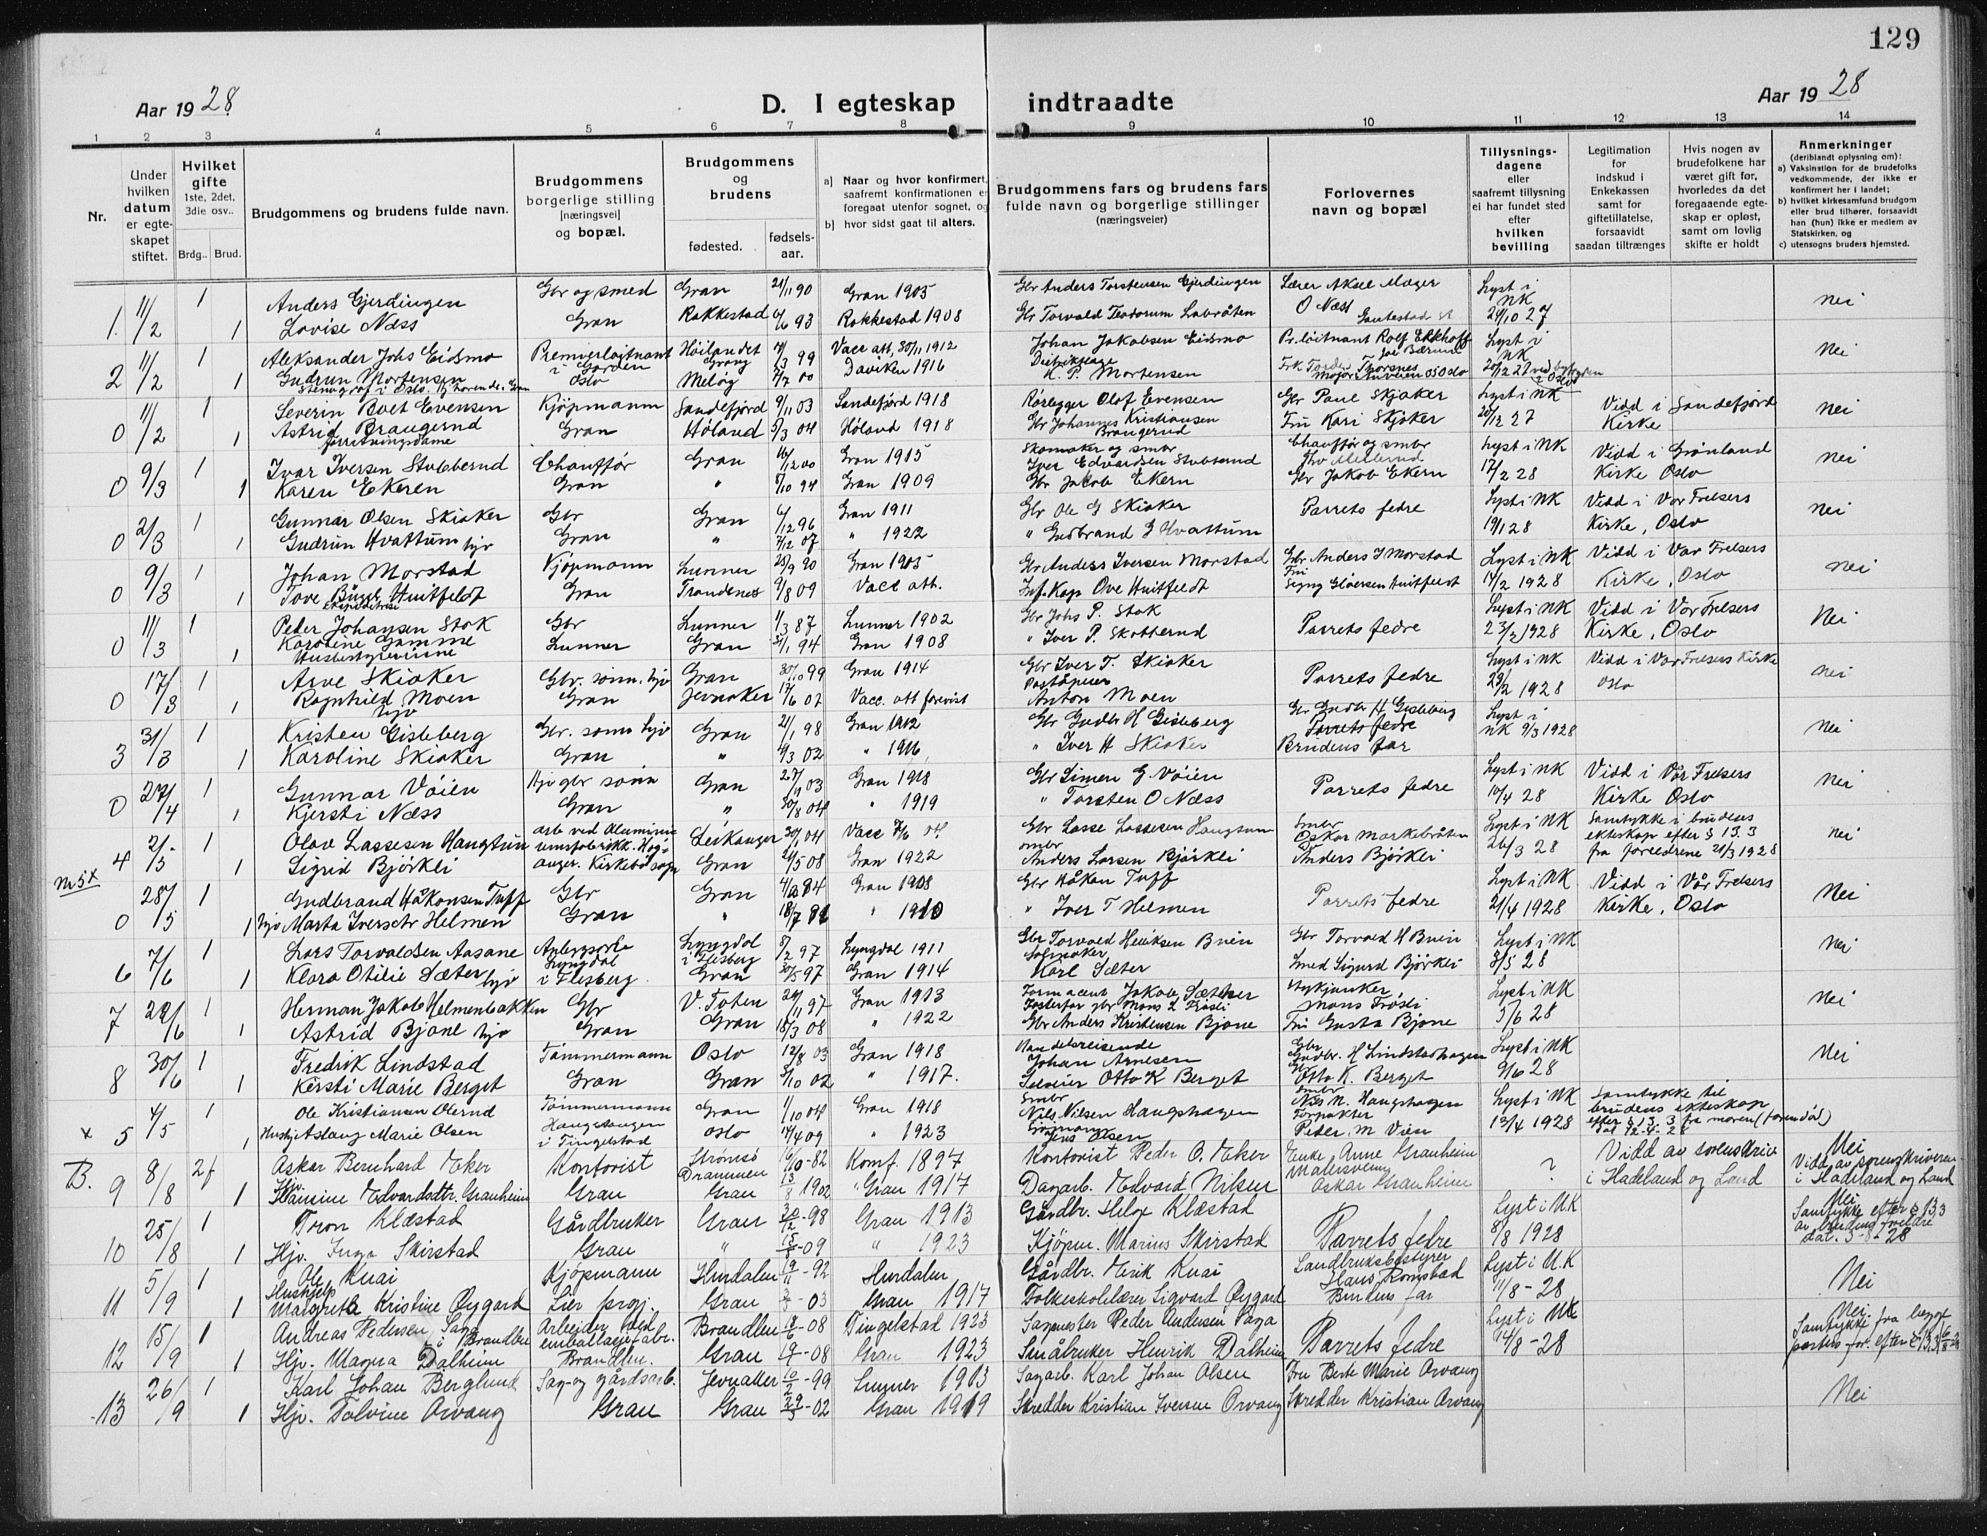 129
Aar 1928.
D. I egteskap indtraadte
Aar 1928
1 2 3 4 5 6 7 8 9 10 11 12 13 14
Nr.
Under hvilken datum er egteskapet stiftet.
Hvilket gifte 1ste, 2det, 3die osv..
Brdg.. Brud.
Brudgommens og brudens fulde navn.
Brudgommens borgerlige stilling [næringsvei] og bopæl.
Brudgommens og brudens
fødested.
fødselsaar.
a) Naar og hvor konfirmert, saafremt konfirmationen er foregaat utenfor sognet, og
b) hvor sidst gaat til alters.
Brudgommens fars og brudens fars fulde navn og borgerlige stillinger (næringsveier)
Forlovernes navn og bopæl
Tillysningsdagene eller saafremt tillysning ei har fundet sted efter hvilken bevilling
Legitimation for indskud i Enkekassen samt for giftetillatelse, forsaavidt saadan tiltrænges
Hvis nogen av brudefolkene har været gift før, hvorledes da det foregaaende egteskap er opløst, samt om lovlig skifte er holdt
Anmerkninger (deriblandt oplysning om):
a) Vaksination for de brudefolks vedkommende, der ikke er konfirmert her i landet;
b) hvilket kirkesamfund brudgom eller brud tilhører, forsaavidt han (hun) ikke er medlem av Statskirken, og
c) utensogns bruders hjemsted.
1. 11/2 1 Anders Gjerdingen Gbr og smed Gran 21/11 90 Gran 1905 Gbr Anders Torstensen Gjerdingen Lærer Aksel Mæger Lyst i NK nei
1 Lovise Næss Gran Rakkestad 6/6 93 Rakkestad 1908 Gbr Torvald Teodorum Labråten O Næss 29/10 27
2 11/2 1 Aleksander Johs Eidsmo Premierløitnant i Garden Høilandet Grong 4/3 99 Vacc att, 30/11 1912 Johan Jakobsen Eidsmo Pr.løitnant Rolf Lyst i NK nei
1 Gudrun Mortensen Oslo Meløy 7/7 00 Daviken 1916 K. P. Mortensen
0 11/2 1 Severin Boet Evensen Kjøpmann Sandefjord 9/11 03 Sandefjord 1918 Rørlegger Olof Evensen Gbr Paul Skjaker Lyst i NK Vidd i Sandefjord nei
1 Astrid Braugerud forretningsdame Gran Høland 5/3 04 Høland 1918 Gbr Johannes Kristiansen Braugerud Fru Kari Skjåker 20/12 27 Kirke
0 9/3 1 Ivar Iversen Stubberud Chauffør Gran 10/12 00 Gran 1915 Skomaker og smbr Iver Edvardsen Stubberud Chauffør og smbr Lyst i NK Vidd i Grønland nei
1 Karen Ekeren Gran " 5/10 94 Gran 1909 Gbr Jakob Ekern Gbr Jakob Ekern 17/2 28 Kirke Oslo
0 2/3 1 Gunnar Olsen Skiaker Gbr Gran 6/12 96 Gran 1911 Gbr Ole G Skiaker Parrets fedre Lyst i NK Vidd i Vor Frelsers nei
1 Gudrun Hvattum hjv Gran " 7/12 07 " 1922 " Gudbrand G Hvattum 19/1 28 Kirke, Oslo
0 9/3 1 Johan Morstad Kjøpmann Lunner 23/9 90 Gran 1905 Gbr Anders Iversen Morstad Gbr Anders I Morstad Lyst i NK Vidd i Vor Frelsers nei
1 Tove Bugge Huitfeldt Gran Trondenes 9/8 09 Vacc att. Inf. Kap Ove Huitfeldt Fru Signy Gløersen Huitfeldt 14/2 1928 Kirke, Oslo
0 11/3 1 Peder Johansen Stok Gbr Lunner 1/3 87 Lunner 1902 Gbr Johs P. Stok Parrets fedre Lyst i NK Vidd i Vor Frelsers Nei
1 Karoline Gamme Husbestyrerinne Lunner Gran 31/1 94 Gran 1908 " Iver P. Skotterud 23/2 1928 Kirke, Oslo
0 17/3 1 Arve Skiaker Gbr. sønn hjv Gran 30/10 99 Gran 1914 Gbr Iver T. Skiaker Parrets fedre Lyst i NK Vidd i Vor Frelsers Kirke nei
1 Ragnhild Moen hjv Gran Jevnaker 12/6 07 Vacc. att forevist Anton Moen 29/2 1928 Oslo
3 31/3 1 Kristen Gisleberg Gbr. sønn hjv Gran 21/1 98 Gran 1912 Gbr Gudbr H Gisleberg Gbr Gudbr H Gisleberg Lyst i nei
1 Karoline Skiaker Gran " 9/3 02 " 1916 " Iver H Skiaker Brudens far NK 9/3 1928
0 27/4 1 Gunnar Vøien Hjv gbr sønn Gran 27/11 03 Gran 1918 Gbr Simen G. Vøien Parrets fedre Lyst i NK Vidd i Vår Frelsers nei
1 Kjersti Næss Gran " 30/8 04 " 1919 " Torsten O Næss 10/4 28 Kirke Oslo
4 2/5 1 Olav Lassesen Haugtun Leikanger 30/1 04 Vacc 7/6 04 Gbr Lasse Lassesen Haugtun Smbr Oskar Markebråten Lyst i NK Samtykke i brudens ekteskap efter § 13.3 nei
1 Sigrid Bjørkli Gran 24/5 08 Gran 1922 smbr Anders Larsen Bjørkli Anders Bjørkli 26/3 28 fra foreldrene 21/3 1928
nr 5 x
0 28/5 1 Gudbrand Håkonsen Tuff Gbr Gran 4/10 84 Gran 1908 Gbr Håkon Tuff Parrets fedre Lyst i NK Vidd i Vår Frelsers Nei
1 hjv Marta Iversdtr Helmen Gran " 18/7 91 " 1910 " Iver T Helmen 21/4 1928 Kirke, Oslo
6 7/6 1 Lars Torvaldsen Aasane Lyngdal i Flesberg 8/2 97 Lyngdal 1911 Gbr Torvald Heriksen Bruin Gbr Torvald H Bruin Lyst i NK nei
1 Klara Otilie Sæter hjv i Flesberg Gran 30/5 97 Gran 1914 Karl Sæter Smed Sigurd Bjørkli 3/5 28
7 22/6 1 Herman Jakob Helmenbakken Gbr V. Toten 24/11 97 Gran 1913 Jakob Sæther Fosterfar gbr Mons L Frøsli Mons Frøsli Lyst i NK nei
1 Astrid Bjone hjv Gran Gran 18/3 08 " 1922 Gbr Anders Kristensen Bjone Fru Gusta Bjone 3/6 28
8 30/6 1 Fredrik Lindstad Tømmermann Oslo 12/8 03 Gran 1918 Handelsreisende Johan Arnesen Gbr Gudbr. H Lindstadhagen Lyst i NK Nei
1 Kersti Marie Berget Gran Gran 5/10 02 " 1917. Otto K Berget Otto K. Berget 9/6 28
x 5 4/5 1 Ole Kristiansen Olerud Tømmermann Gran 1/10 04 Gran 1918 Smbr Nils Nilsen Haugshagen Smbr Nils N. Haugshagen Lyst i NK Samtykke til brudens ekteskap
1 Aslaug Marie Olsen i Tingelstad Oslo 17/4 09 " 1923 Jens Olsen Forpakter Peder M Vien 12/4 1928 efter § 13.3 fra moren (faren død) dat 12-4-28
B. 9 8/8 2f Askar Bernhard Meker Kontorist Strømsø Drammen 16/10-82 Konf. 1897 Kontorist Peder O. Meker Enke Anne Granheim ? Vidd av sorenskriver Nei
1 Hjv. Hansine Edvardsdtr. Granheim Gran Gran 13/8 1902 " Gran 1917 Dagarb. Edvard Nilsen Malersvenn Oskar Granheim i Hadeland og Land Vidd av sorenskriveren i Hadeland og Land
10 25/8 1 Toron Klæstad Gårdbruker Gran 30/12-98 Gran 1913 Gårdbr. Helge Klæstad Parrets fedre Lyst i N.K Nei Samtykke efter § 13,3
1 Hjv. Inga Skirstad Gran " 15/8-09 " 1923 Kjøpm. Marius Skirstad 8/8 1928 av brudens foreldre dat. 3-8-28
11 5/9 1 Ole Knai Kjøpmann Hurdalen 19/11-92 Hurdalen Gårdbr. Erik Knai Landbruksbestyrer Hans Romstad Lyst i N.K Nei
1 Hushjelp Margrethe Kristine Øygard Lier prgj. Gran 3/3-03 Gran 1917 Folkeskolelærer Sigvard Øygard Brudens far 11/8-28
12 15/9 1 Andreas Pedersen Saga i Brandbu Arbeider ved emballasjefabr. Brandbu 18/6-08 Tingelstad 1923 Sagmester Peder Andersen Saga Parrets fedre Lyst i NK Nei Samtykke fra begge
1 Hjv. Magna Dalheim Brandbu. Gran 19/1-08 Gran 1923 Småbruker Henrik Dalheim 14/8-28
13 26/9 1 Karl Johan Berglund Sag- og gårdsarb. Jevnaker 10/2-99 Lunner 1913 Sagarb. Karl Johan Olsen Fru Berte Marie Orvang Nei
1 Hjv. Tolvine Orvang Gran Gran 29/3-02 Gran 1919 Skredder Kristian Iversen Orvang Skredder Kristian Orvang